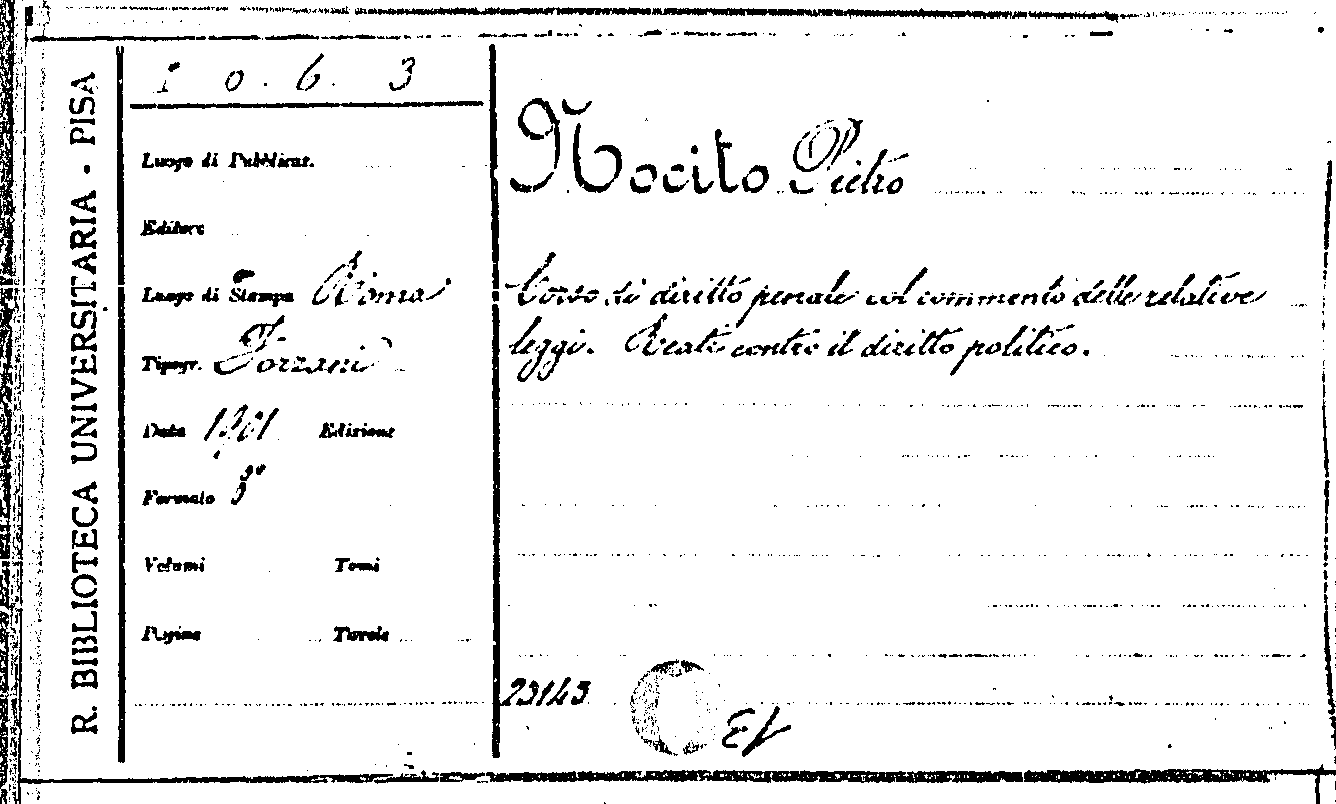 R. BIBLIOTECA UNIVERSITARIA - PISA
I o. 6. 3
Luogo di Pubblicaz.
Editore
Luogo di Stampa Roma
Tipogr. Forzani
Data 1901 Edizione
Formato 8°
Volumi Tomi
Pagine Tavole
Nocito Pietro
Corso di diritto penale col commento delle relative
leggi. Reati contro il diritto politico.
23143